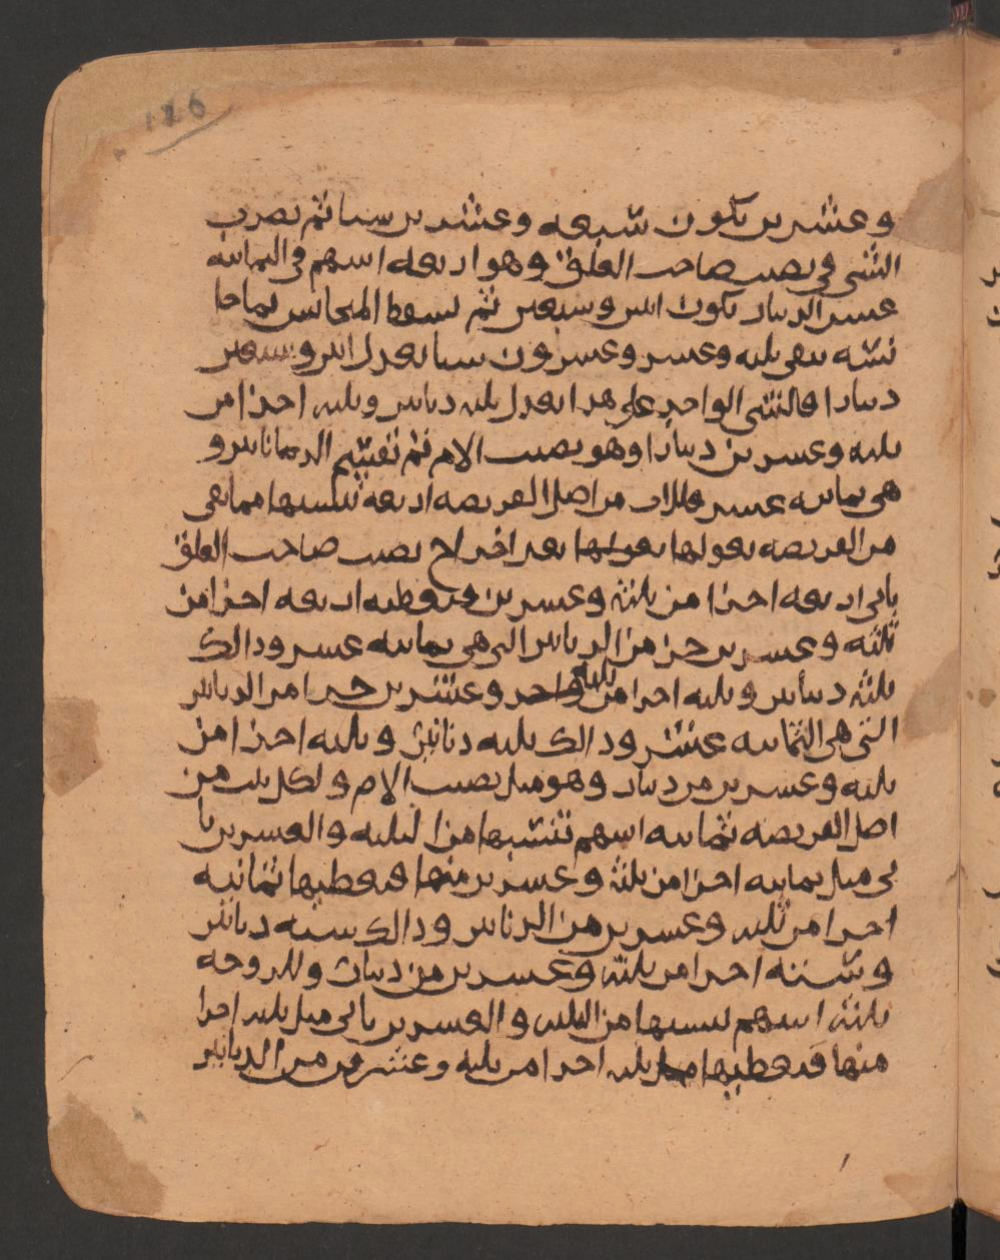 126
وعشرين يكون سبعه وعشرين سيا ثم نضرب
الشي في نصيب صاحب العلق وهو اربعه اسهم في الثمانيه
عسر الدينار يكون اثنين وسبعين ثم نسقط المجانس بما جا
نسه يبقى ثلثه وعسر وعسرون سيا يعدل اثنين وسبعين
دينارا فالشي الواحد على هذا يعدل ثلثه دنانير وثلثه اجزا من
ثلثه وعسرين دينارا وهو نصيب الام ثم تقسم الدنانير و
هي ثمانيه عسر فللاب من اصل الفريضه اربعه تنسبها مما بقي
من الفريضه بعولها بعد اخراج نصيب صاحب العلق
ياتي اربعه اجزا من ثلثه وعسرين فتعطيه اربعه اجزا من
ثلثه وعسرين جزا من الدنانير التي هي ثمانيه عسر وذالك
ثلثه دنانير وثلثه اجزا من ثلثه وعشرين جزا من الدنانير
التي هي الثمانيه عشر وذالك ثلثه دنانير وثلثه اجزا من
ثلثه وعسرين من دينار وهو مثل نصيب الام ولكل بنت من
اصل الفريضه ثمانيه اسهم تنسبها من الثلثه والعسرين يا
تي مثل ثمانيه اجزا من ثلثه وعسرين منها فتعطيها ثمانيه
اجزا من ثلثه وعسرين من الدنانير وذالك سته دنانير
وسته اجزا من ثلثه وعسرين من دينار وللزوجه
ثلثه اسهم تنسبها من الثلثه والعسرين ياتي مثل ثلثه اجزا
منها فتعطيها ثلثه اجزا من ثلثه وعشرين من الدنانير